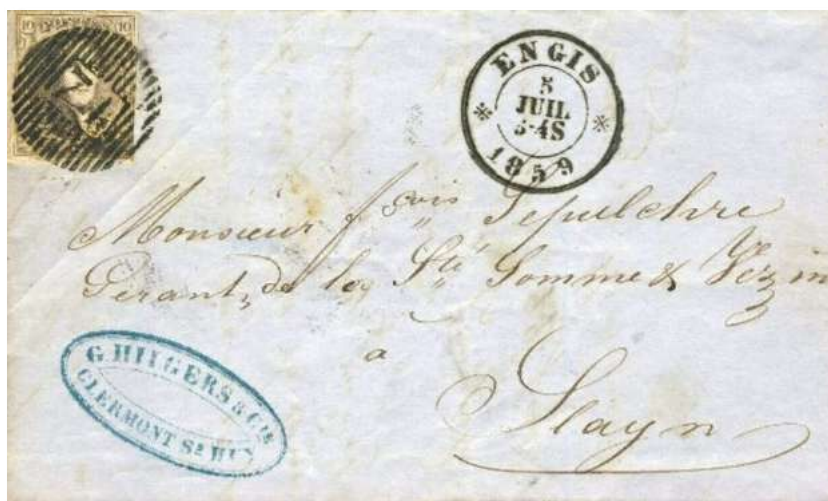 10 10
ENGIS
5
JUIL
3-4S
1859
Monsieur fçois Sepulchre
Gerant de la Sté Somme & Vezin
a
Slayn
G HIIYGERS & Cie
CLERMONT St HUY